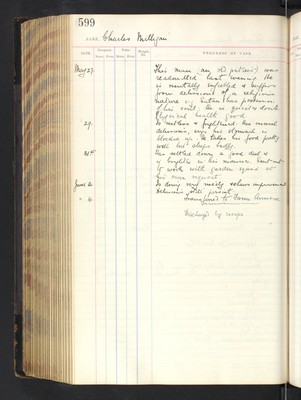 599
NAME Charles Milligan
DATE. PROGRESS OF CASE.
May 27. This man (an old patient) was
readmitted last evening. He
is mentally confused & suffers
from delusions of a religious
nature eg Satan has possession
of his soul; he is quiet & docile
Physical health good
29. Is restless & frightened. Has marked
delusions, says his stomach is
blocked up. He takes his food fairly
well but sleeps badly.
31st Has settled down a good deal &
is brighter in his manner. Sent out
to work with garden squad at
his own request.
June 2. Is doing very nicely & shows improvement
Delusions still present.
" 6. Transferred to Farm Annexe
Discharged by escape